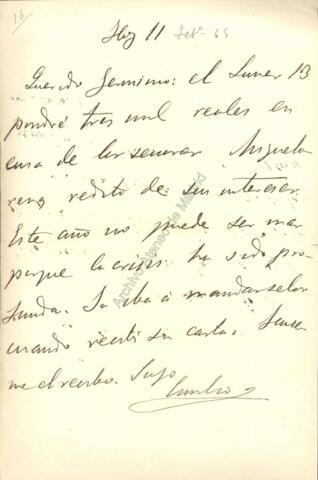 16
Hoy 11 Febº 65
Querido Jeronimo: el Lunes 13
pondré tres mil reales en
casa de los señores Miguele
renz redito de sus intereses.
Este año no puede ser mas
porque la crisis ha sido pro-
funda. Ya iba á mandarselos
cuando recibi su carta.
me el recibo. Suyo
Emilio
Archivo Ateneo de Madrid